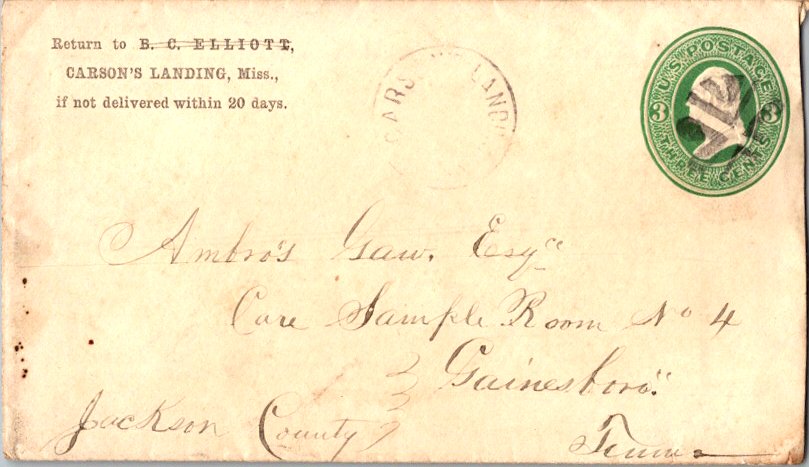 Return to B. C. ELLIOTT,
CARSON'S LANDING, Miss.,
if not delivered within 20 days.
CARS LAND
U.S. POSTAGE
3 3
THREE CENTS
Ambro's Gaw. Esq"
Care Sample Room No 4
Gainesboro"
Jackson County
Tenn